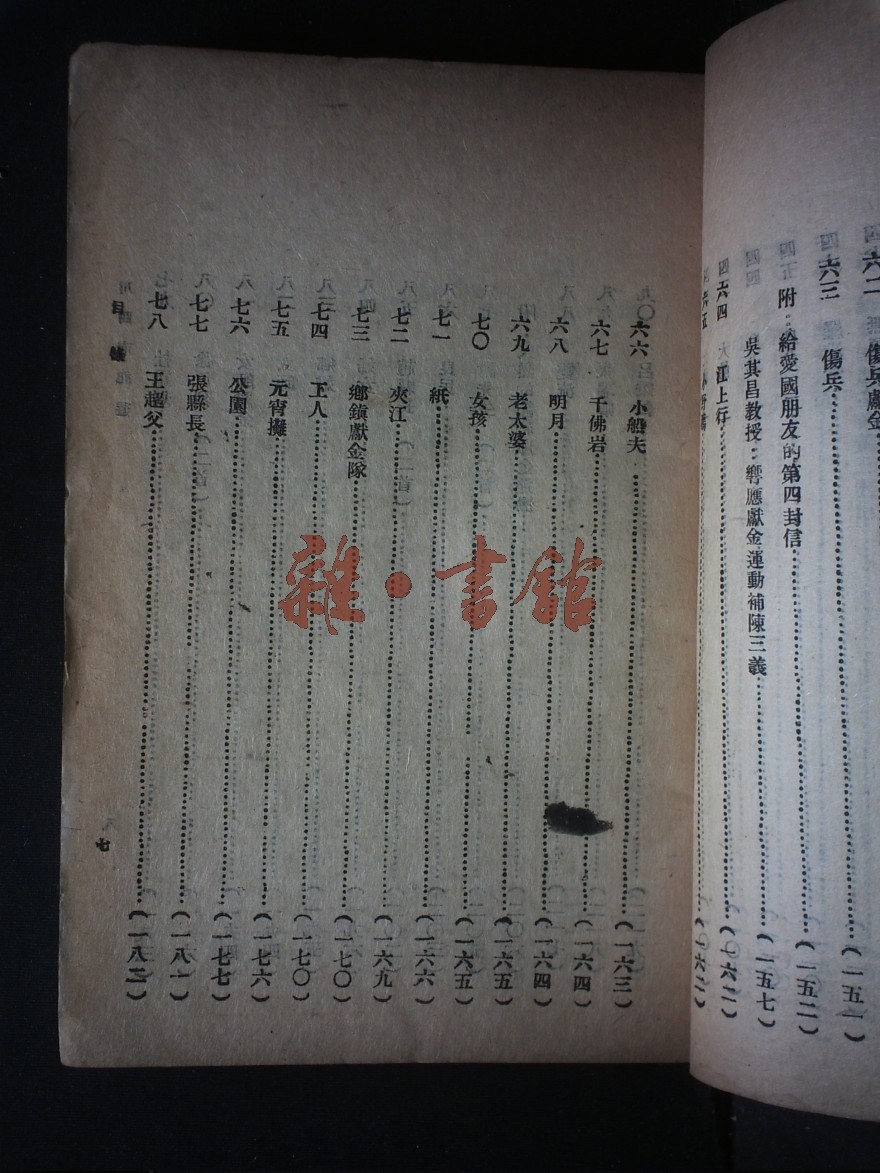 六二 傷兵獻金
六三 傷兵……(一五一)
附：給愛國朋友的第四封信……(一五二)
吳其昌教授：響應獻金運動補陳三義……(一五七)
六四 江上行……(一六二)
六五……(一六二)
六六 小船夫……(一六三)
六七 千佛岩……(一六四)
六八 明月……(一六四)
六九 老太婆……(一六五)
七〇 女孩……(一六五)
七一 紙……(一六六)
七二 夾江……(一六九)
七三 鄉鎮獻金隊……(一七〇)
七四 工人……(一七〇)
七五 元宵攤……(一七六)
七六 公園……(一七七)
七七 張縣長……(一八一)
七八 王超父……(一八二)
目錄
七
雜·書館